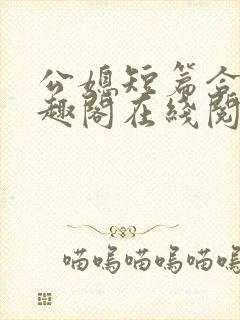 公媳短篇合
趣阁在线阅
喵呜喵呜喵呜